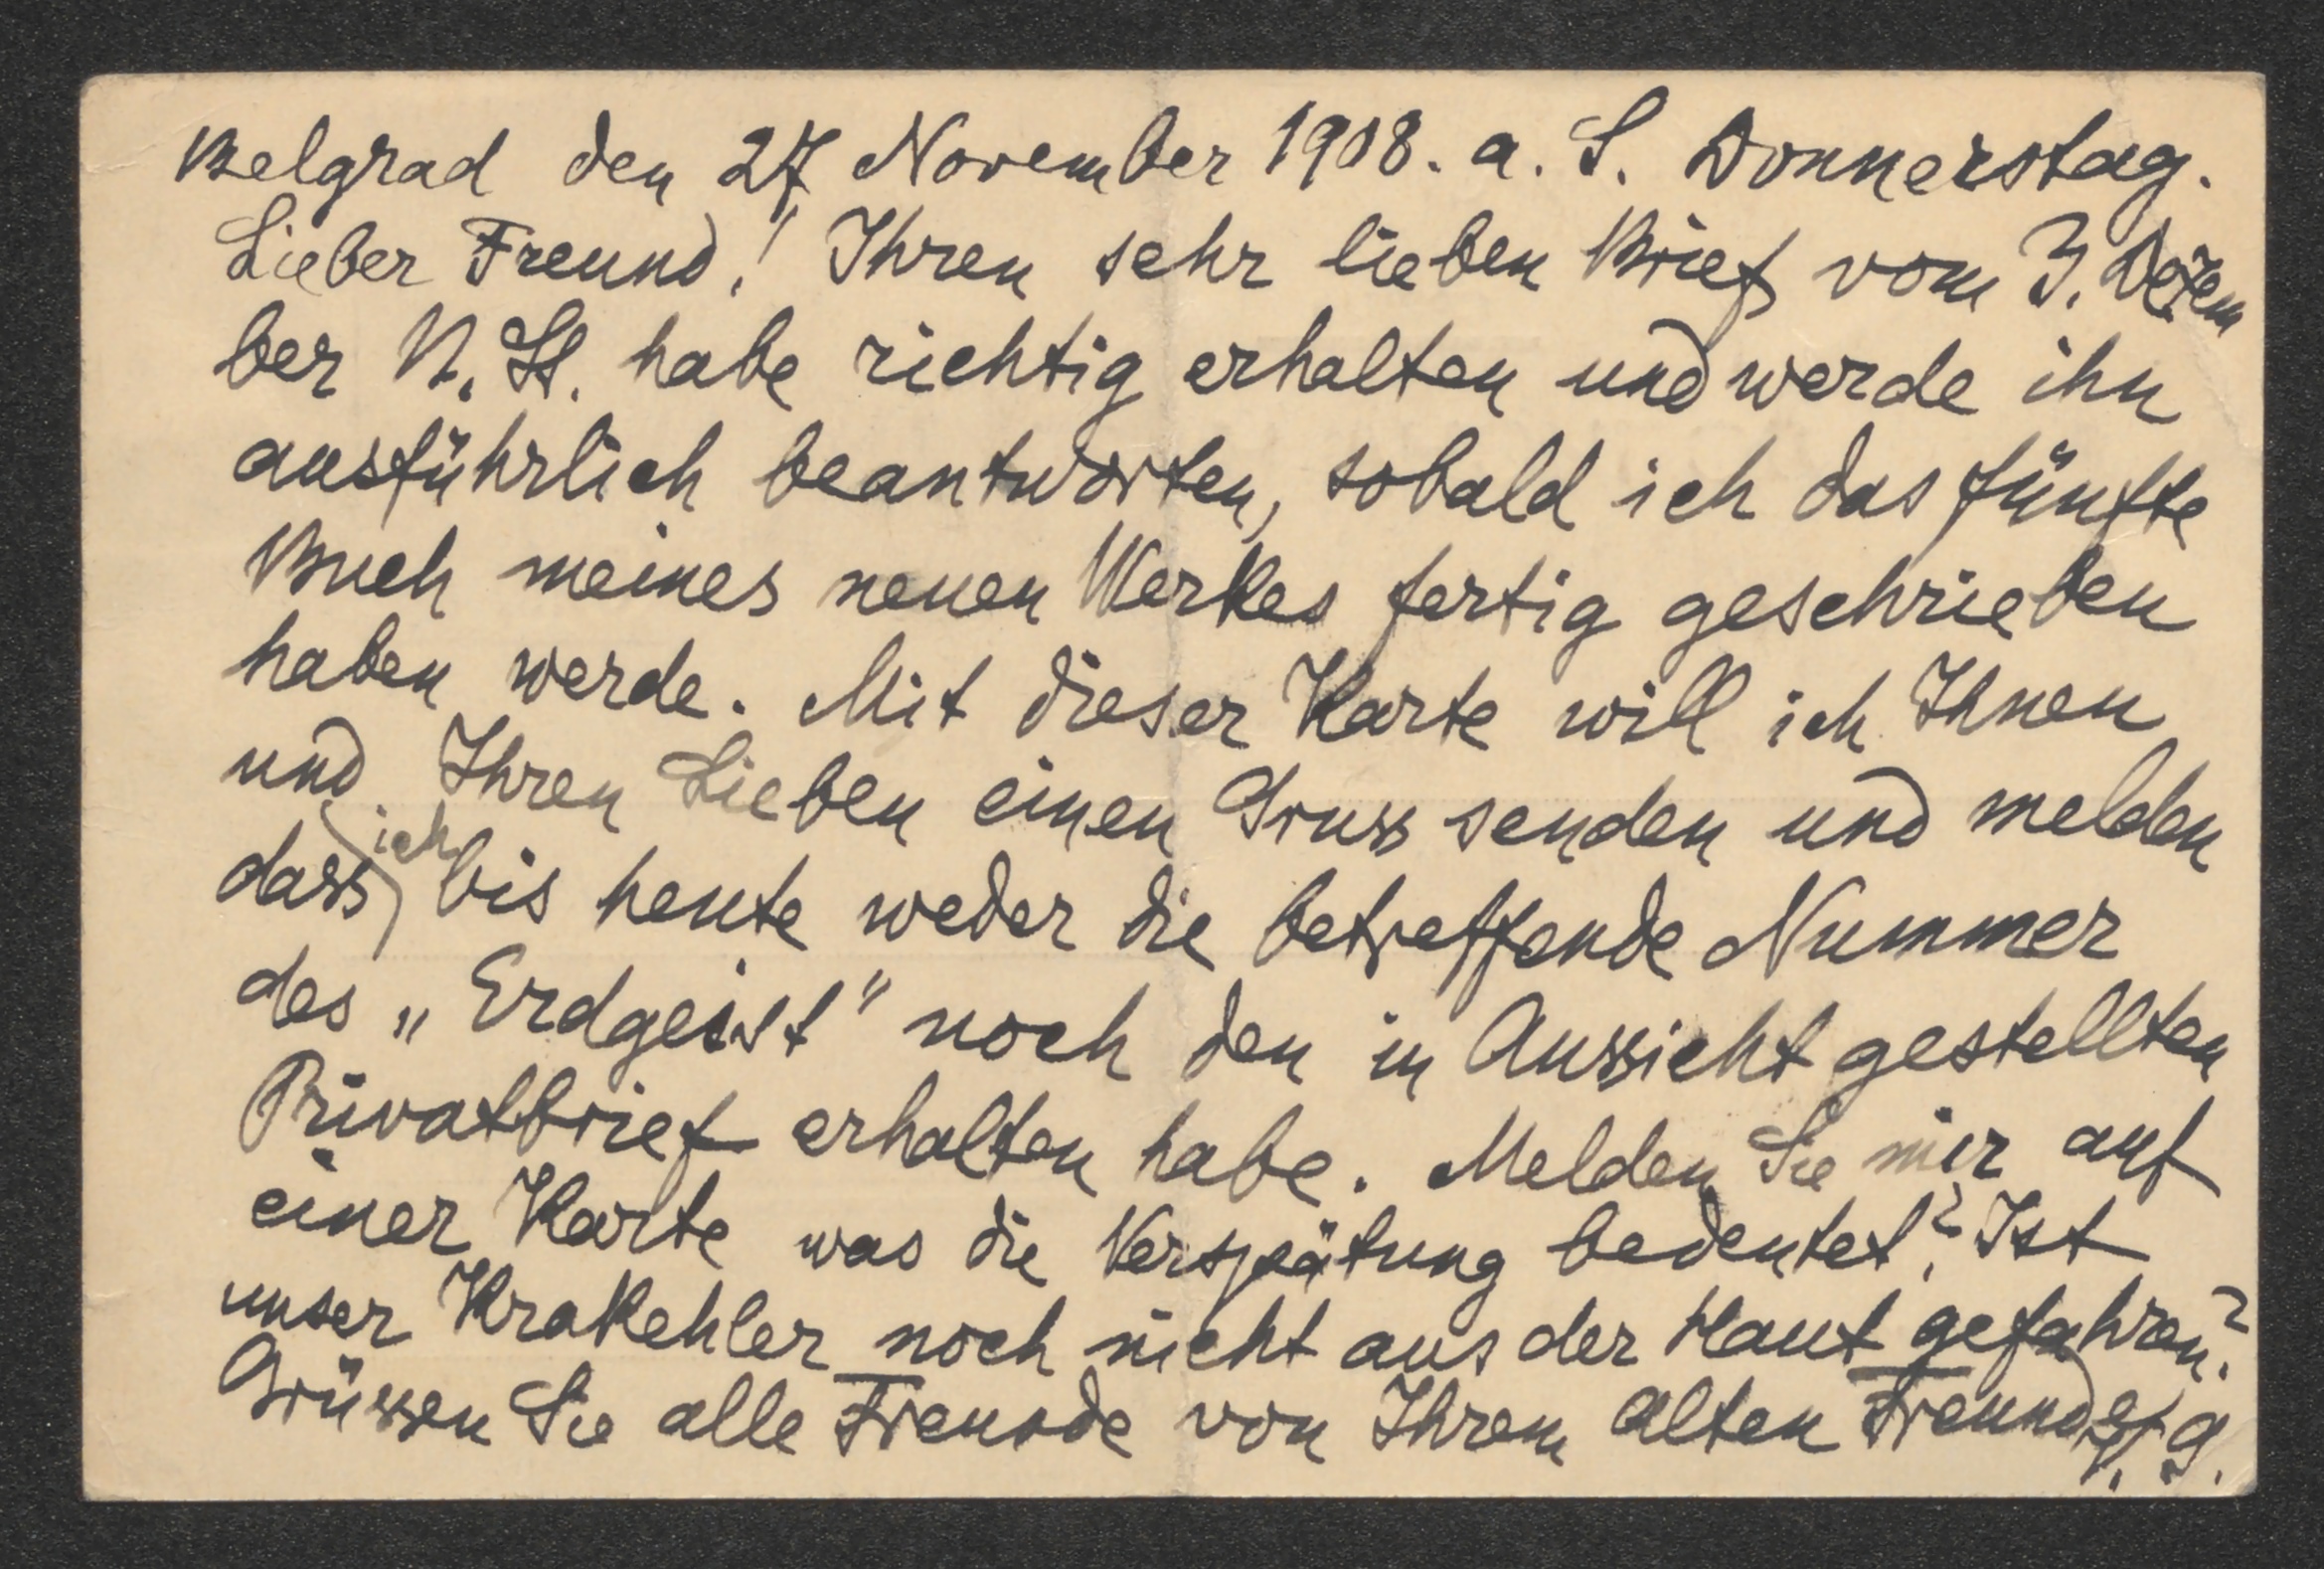 Belgrad den 27 November 1908. a. S. Donnerstag.
Lieber Freund! Ihren sehr lieben Brief vom 3. Dezem
ber N. St. habe richtig erhalten und werde ihn
ausführlich beantworten, sobald ich das fünfte
Buch meines neuen Werkes fertig geschrieben
haben werde. Mit dieser Karte will ich Ihnen
und Ihren Lieben einen Gruss senden und melden
dass ich bis heute weder die betreffende Nummer
des „Erdgeist" noch den in Aussicht gestellten
Privatbrief erhalten habe. Melden Sie mir auf
einer Karte was die Verspätung bedeutet? Ist
unser Krakehler noch nicht aus der Haut gefahren?
Grüssen Sie alle Freunde von Ihrem alten Freunde